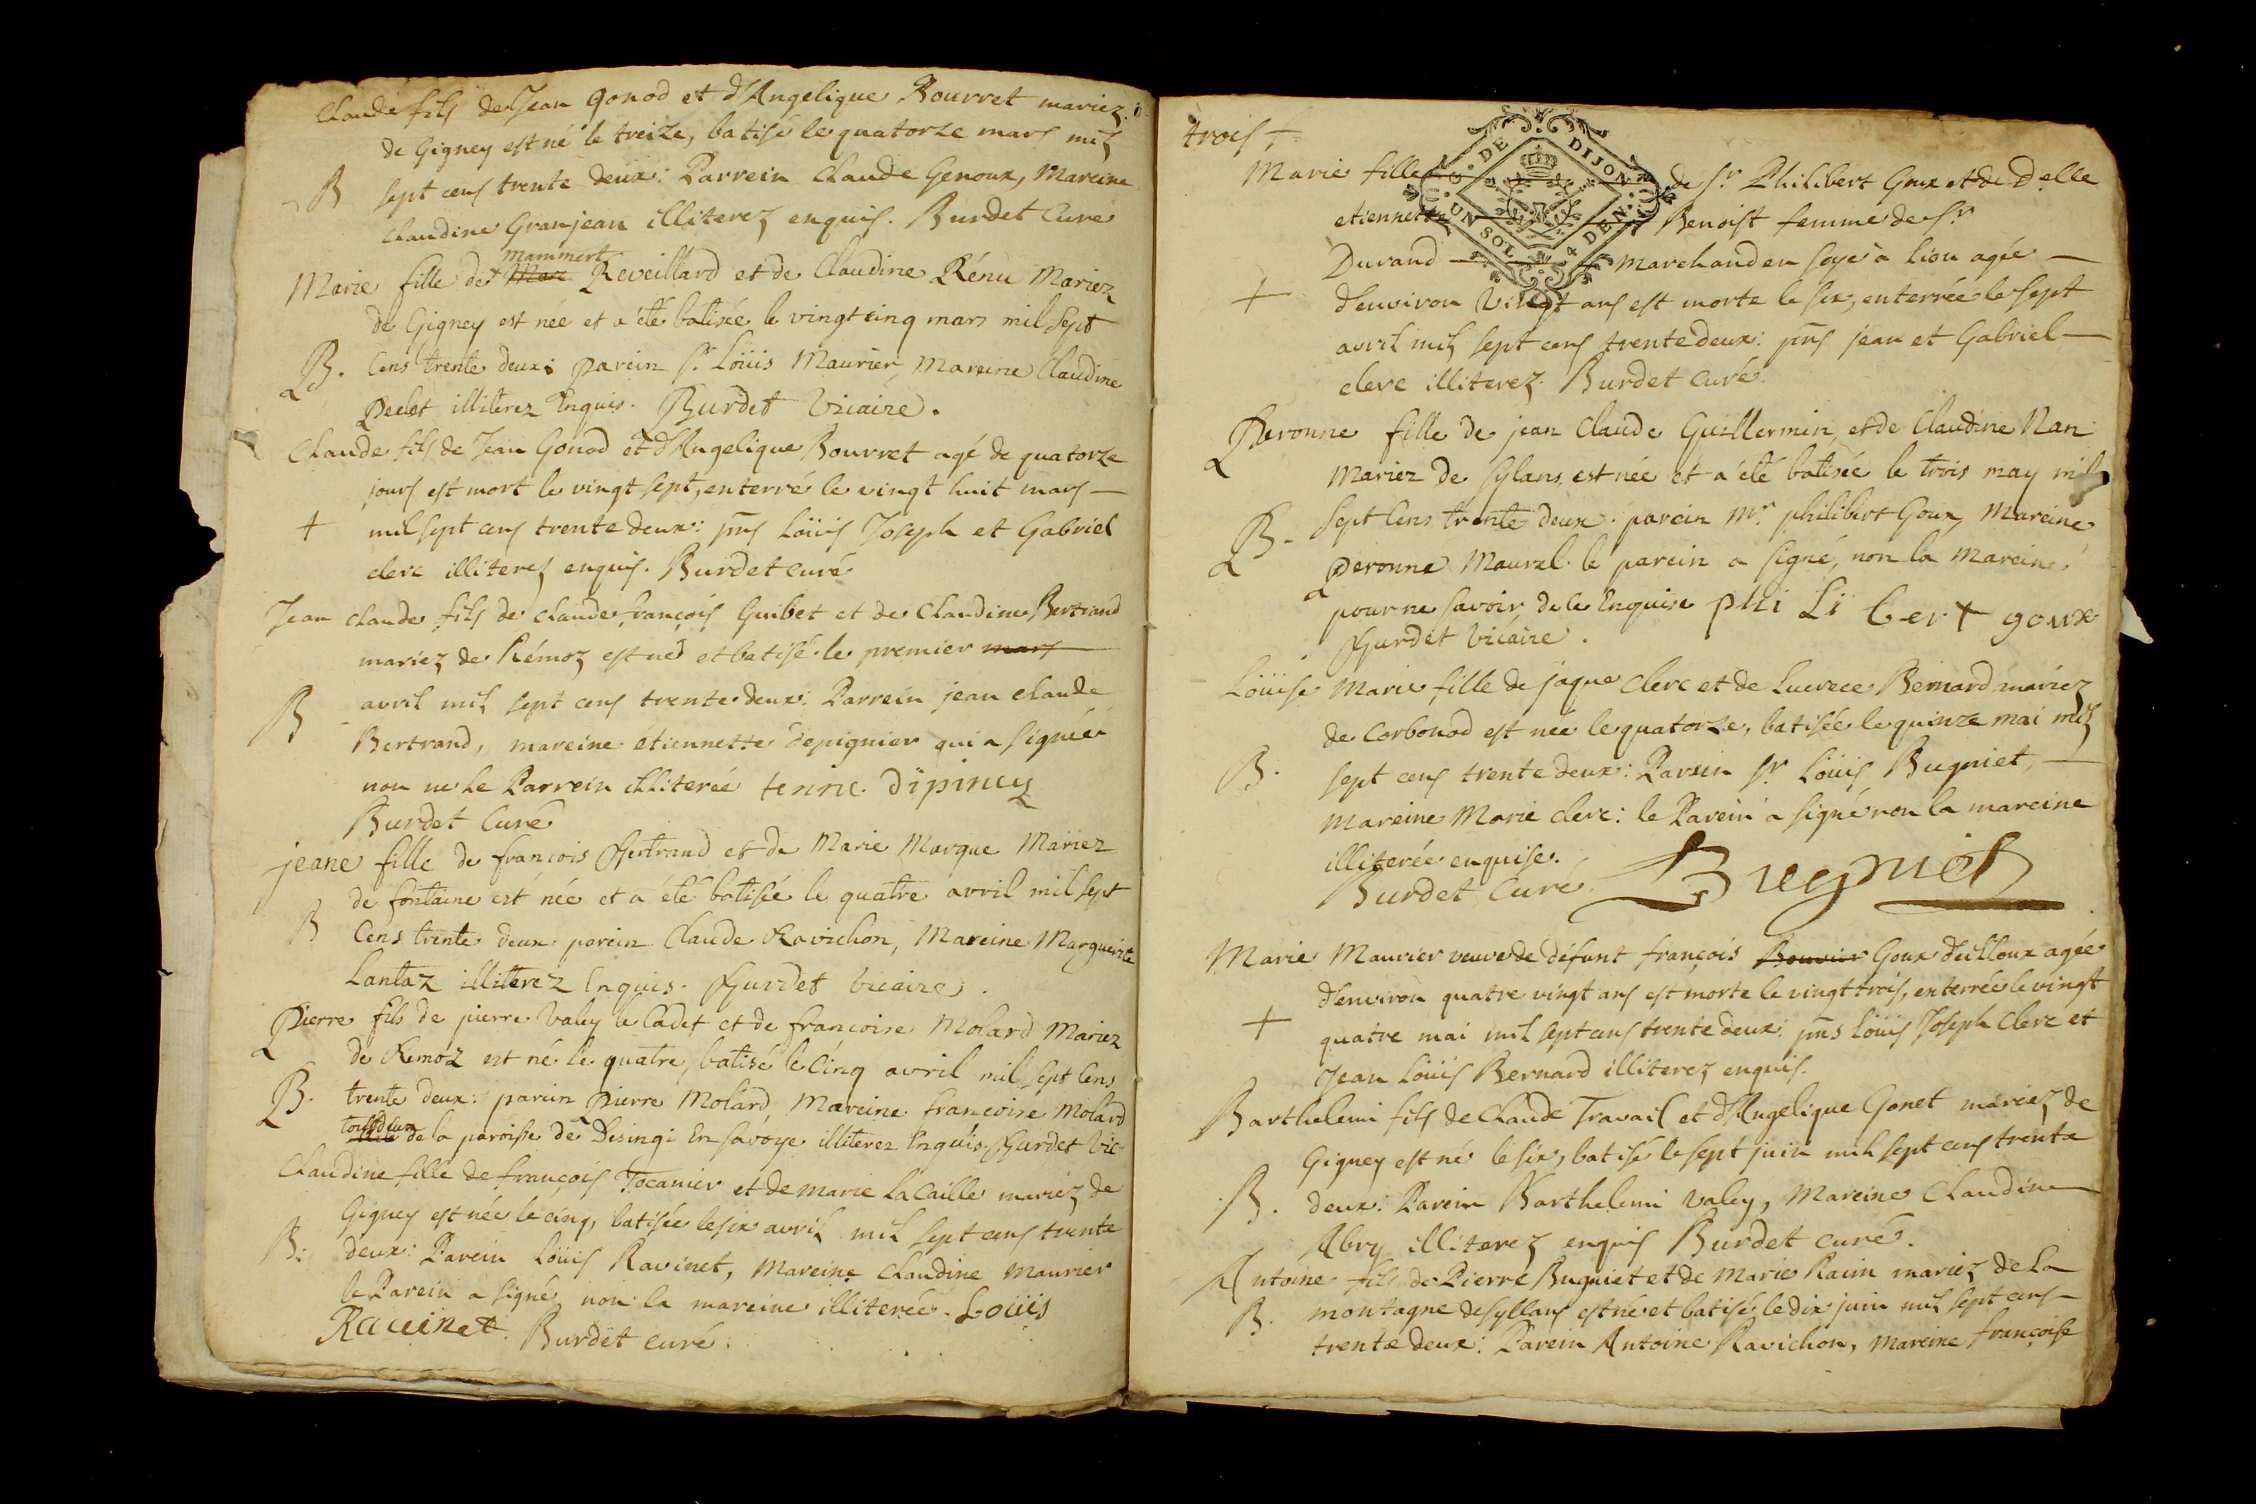 Claude fils de Jean Gonod et d'Angelique Bourret mariez
de Gigney est né le treize, batisé le quatorze mars mil
B sept cens trente deux: Parrein Claude Genoux, Mareine
Claudine Granjean illiterez enquis. Burdet Curé
mammert
Marie fille de Marc Reveillard et de Claudine Rénu Mariez
de Gigney est née et a été batisée le vingt cinq mars mil sept
B. Cens trente deux: parein sr. Loüis Maurier, Mareine Claudine
Peclet illiterez Enquis. Burdet Vicaire.
Claude fils de Jean Gonod et d'Angelique Bourret agé de quatorze
jours est mort le vingt sept, enterré le vingt huit mars
+ mil sept cens trente deux: pns Loüis Joseph et Gabriel
clerc illiterez enquis. Burdet curé
Jean claude fils de claude françois Guibet et de Claudine Bertrand
mariez de Rémoz est né et batisé le premier mars
B avril mil sept cens trente deux: Parrein jean claude
Bertrand, mareine étiennette depignier qui a signée
non ne le Parrein illiterée tenne dipiney
Burdet Curé
jeane fille de francois Bertrand et de Marie Marque Mariez
de fontaine est née et a été batisée le quatre avril mil sept
B Cens trente deux parein Claude Ravichon, Mareine Margueritte
Lantaz illiterez Enquis. Burdet Vicaire.
Pierre fils de pierre Valey le Cadet et de francoise Molard Mariez
de Remoz est né le quatre, batisé le Cinq avril mil sept Cens
B. trente deux: parein Pierre Molard, Mareine francoise Molard
tous deux
de la paroisse de Disingi En Savoye illiterez Enquis Burdet Vic
Claudine fille de françois Jocanier et de marie La Caille mariez de
Gigney est née le cinq, batisée le six avril mil sept cens trente
B: deux: Parein Loüis Ravinet, Mareine Claudine Maurier
le Parein a signé non la mareine illiterée. Loüis
Ravinet. Burdet curé.
trois +
GE DE DIJON
UN SOL 4 DEN
Marie fille de sr Philibert Goux et de Delle
etiennette Benoist femme de sr
Durand marchand en soye à lion agée
+ d'environ Vingt ans est morte le six, enterrée le sept
avril mil sept cens trente deux: pns jean et Gabriel
clerc illiterez. Burdet Curé.
Peronne fille de jean Claude Guillermin, et de Claudine Nan
Mariez de Sylans est née et a été batisée le trois may mil
B. sept Cens trente deux. parein Mr philibert Goux, Mareine
peronne Maurel. le parein a signé, non la Mareine
pour ne savoir de ce Enquise phi Li bert goux
Burdet Vicaire.
Loüise Marie fille de jaque Clerc et de Lucrece Bernard mariez
de Corbonod est née le quatorze, batisée le quinze mai mil
B. sept cens trente deux: Parein sr Loüis Bugniet,
Mareine Marie clerc: le Parein a signé non la mareine
illiterée enquise.
Burdet Curé. Bugniet
Marie Maurier veuve de défunt françois Bouvier Goux d'eilloux agée
d'environ quatre vingt ans est morte le vingt trois, enterrée le vingt
+ quatre mai mil sept cens trente deux: pns Loüis Joseph Clerc et
Jean Loüis Bernard illiterez enquis.
Barthelemi fils de Claude Travail et d'Angelique Gonet mariez de
Gigney est né le six, batisé le sept juin mil sept cens trente
B. deux: Parein Barthelemi Valey, Mareine Claudine
Abry illiterez enquis Burdet curé.
Antoine fils de Pierre Bugniet et de Marie Raim mariez de La
B. montagne de syllans est né et batisé le dix juin mil sept cens
trente deux: Parein Antoine Ravichon, Mareine françoise